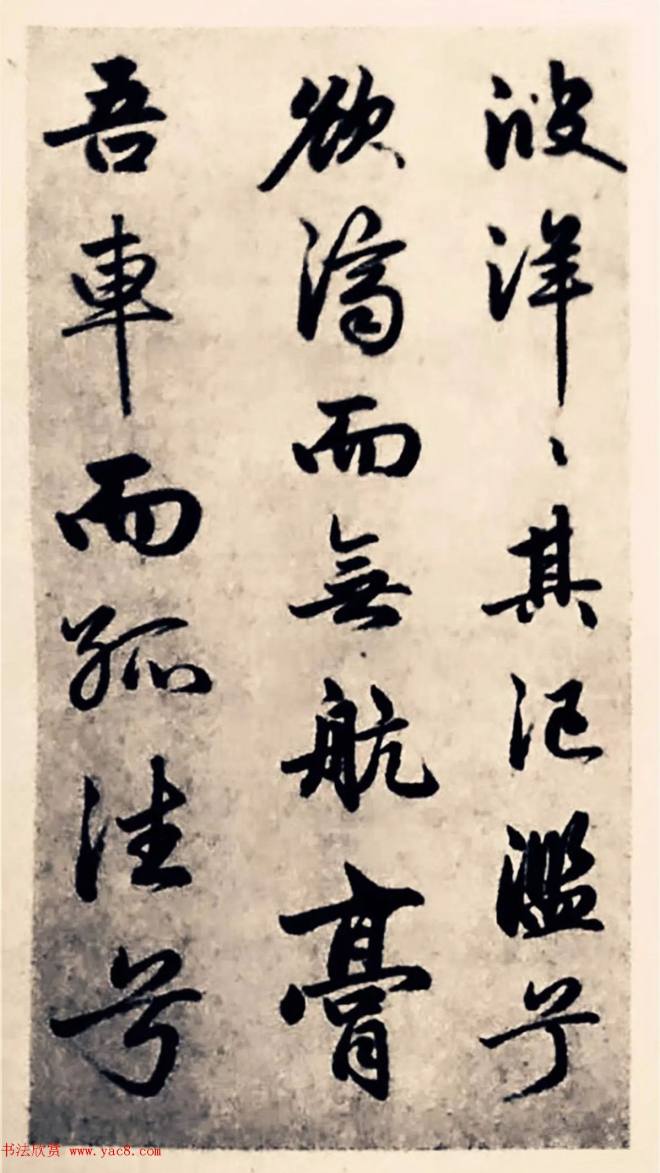 波洋〻其氾濫兮
欲濟而無航膏
吾車而孤往兮
书法欣赏 www.yac8.com